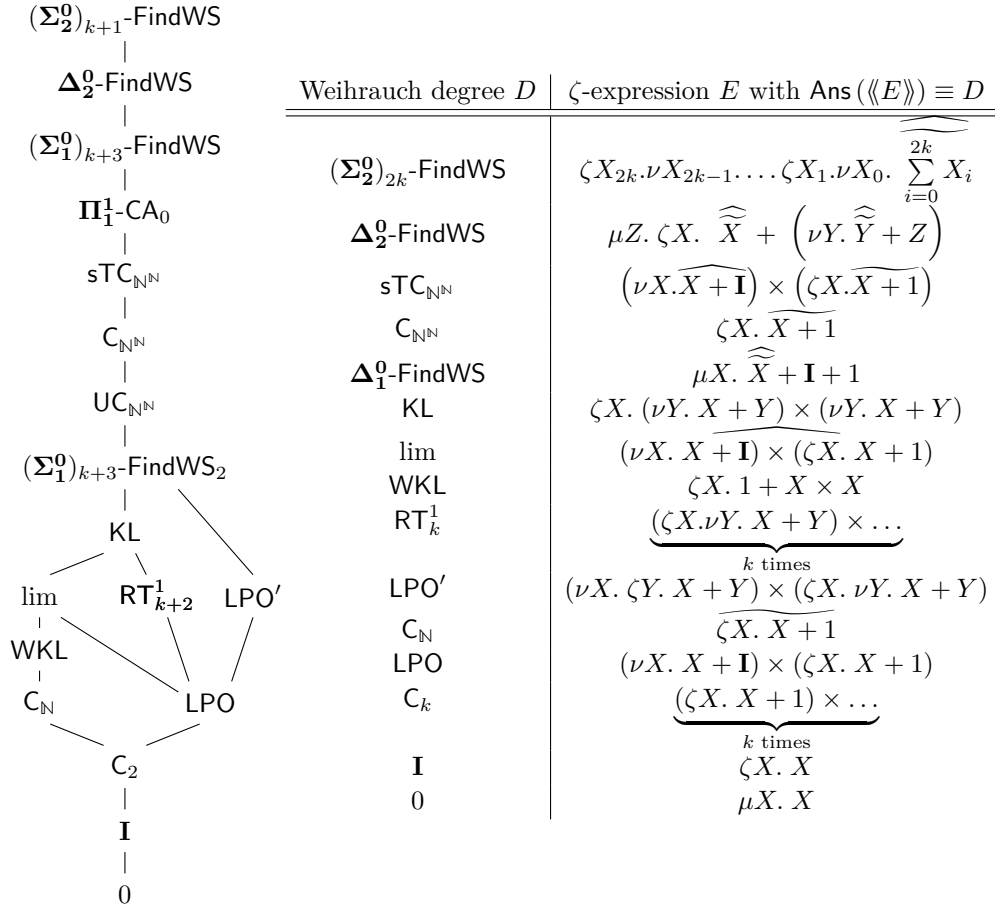 (Σ⁰₂)ₖ₊₁-FindWS
Δ⁰₂-FindWS
(Σ⁰₁)ₖ₊₃-FindWS
Π¹₁-CA₀
sTC_{ℕ^ℕ}
C_{ℕ^ℕ}
UC_{ℕ^ℕ}
(Σ⁰₁)ₖ₊₃-FindWS₂
KL
lim
RT¹ₖ₊₂
LPO′
WKL
C_ℕ
LPO
C₂
I
0
Weihrauch degree D | ζ-expression E with Ans(⟪E⟫) ≡ D
(Σ⁰₂)₂ₖ-FindWS | $\zeta X_{2k}.\nu X_{2k-1}.\ldots\zeta X_1.\nu X_0.\ \widehat{\widetilde{\sum_{i=0}^{2k} X_i}}$
Δ⁰₂-FindWS | $\mu Z.\ \zeta X.\ \widehat{\widetilde{X}} + \left(\nu Y.\ \widehat{\widetilde{Y}} + Z\right)$
sTC_{ℕ^ℕ} | $\left(\nu X.\widehat{X + \mathbf{I}}\right) \times \left(\zeta X.\widetilde{X + 1}\right)$
C_{ℕ^ℕ} | $\zeta X.\ \widetilde{X + 1}$
Δ⁰₁-FindWS | $\mu X.\ \widehat{\widetilde{X}} + \mathbf{I} + 1$
KL | $\zeta X.\ (\nu Y.\ X + Y) \times (\nu Y.\ X + Y)$
lim | $\widehat{(\nu X.\ X + \mathbf{I}) \times (\zeta X.\ X + 1)}$
WKL | $\zeta X.\ 1 + X \times X$
RT¹ₖ | $\underbrace{(\zeta X.\nu Y.\ X + Y) \times \ldots}_{k \text{ times}}$
LPO′ | $(\nu X.\ \zeta Y.\ X + Y) \times (\zeta X.\ \nu Y.\ X + Y)$
C_ℕ | $\widetilde{\zeta X.\ X + 1}$
LPO | $(\nu X.\ X + \mathbf{I}) \times (\zeta X.\ X + 1)$
Cₖ | $\underbrace{(\zeta X.\ X + 1) \times \ldots}_{k \text{ times}}$
I | $\zeta X.\ X$
0 | $\mu X.\ X$